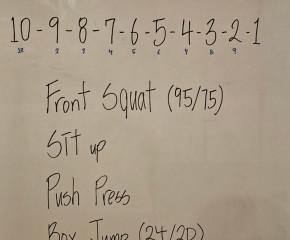 10-9-8-7-6-5-4-3-2-1
Front Squat (95/75)
Sit up
Push Press
Box Jump (24/20)